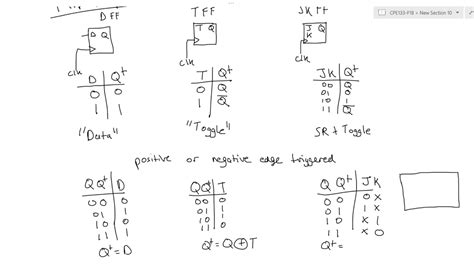 CPE133-F18 > New Section 10
DFF TFF JK FF
D Q T Q J Q
K
clk clk clk
D Q⁺ T Q⁺ JK Q⁺
0 0 0 Q 00 Q
1 1 1 Q̅ 01 0
10 1
11 Q̅
"Data" "Toggle" SR + Toggle
positive or negative edge triggered
Q Q⁺ D Q Q⁺ T Q Q⁺ J K
00 0 00 0 00 0 x
01 1 01 1 01 1 x
10 0 10 1 10 x 1
11 1 11 0 11 x 0
Q⁺=D Q⁺=Q⊕T Q⁺=